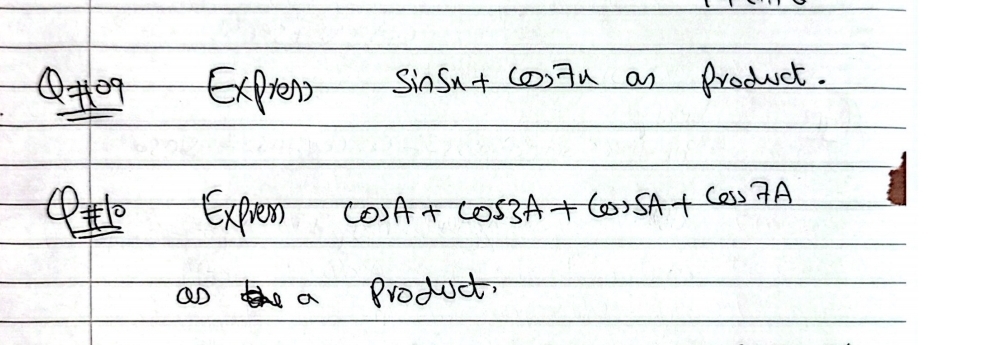 Q#09 Express Sin5x + Cos7x as Product.
Q#10 Express CosA + Cos3A + Cos5A + Cos7A
as a Product.